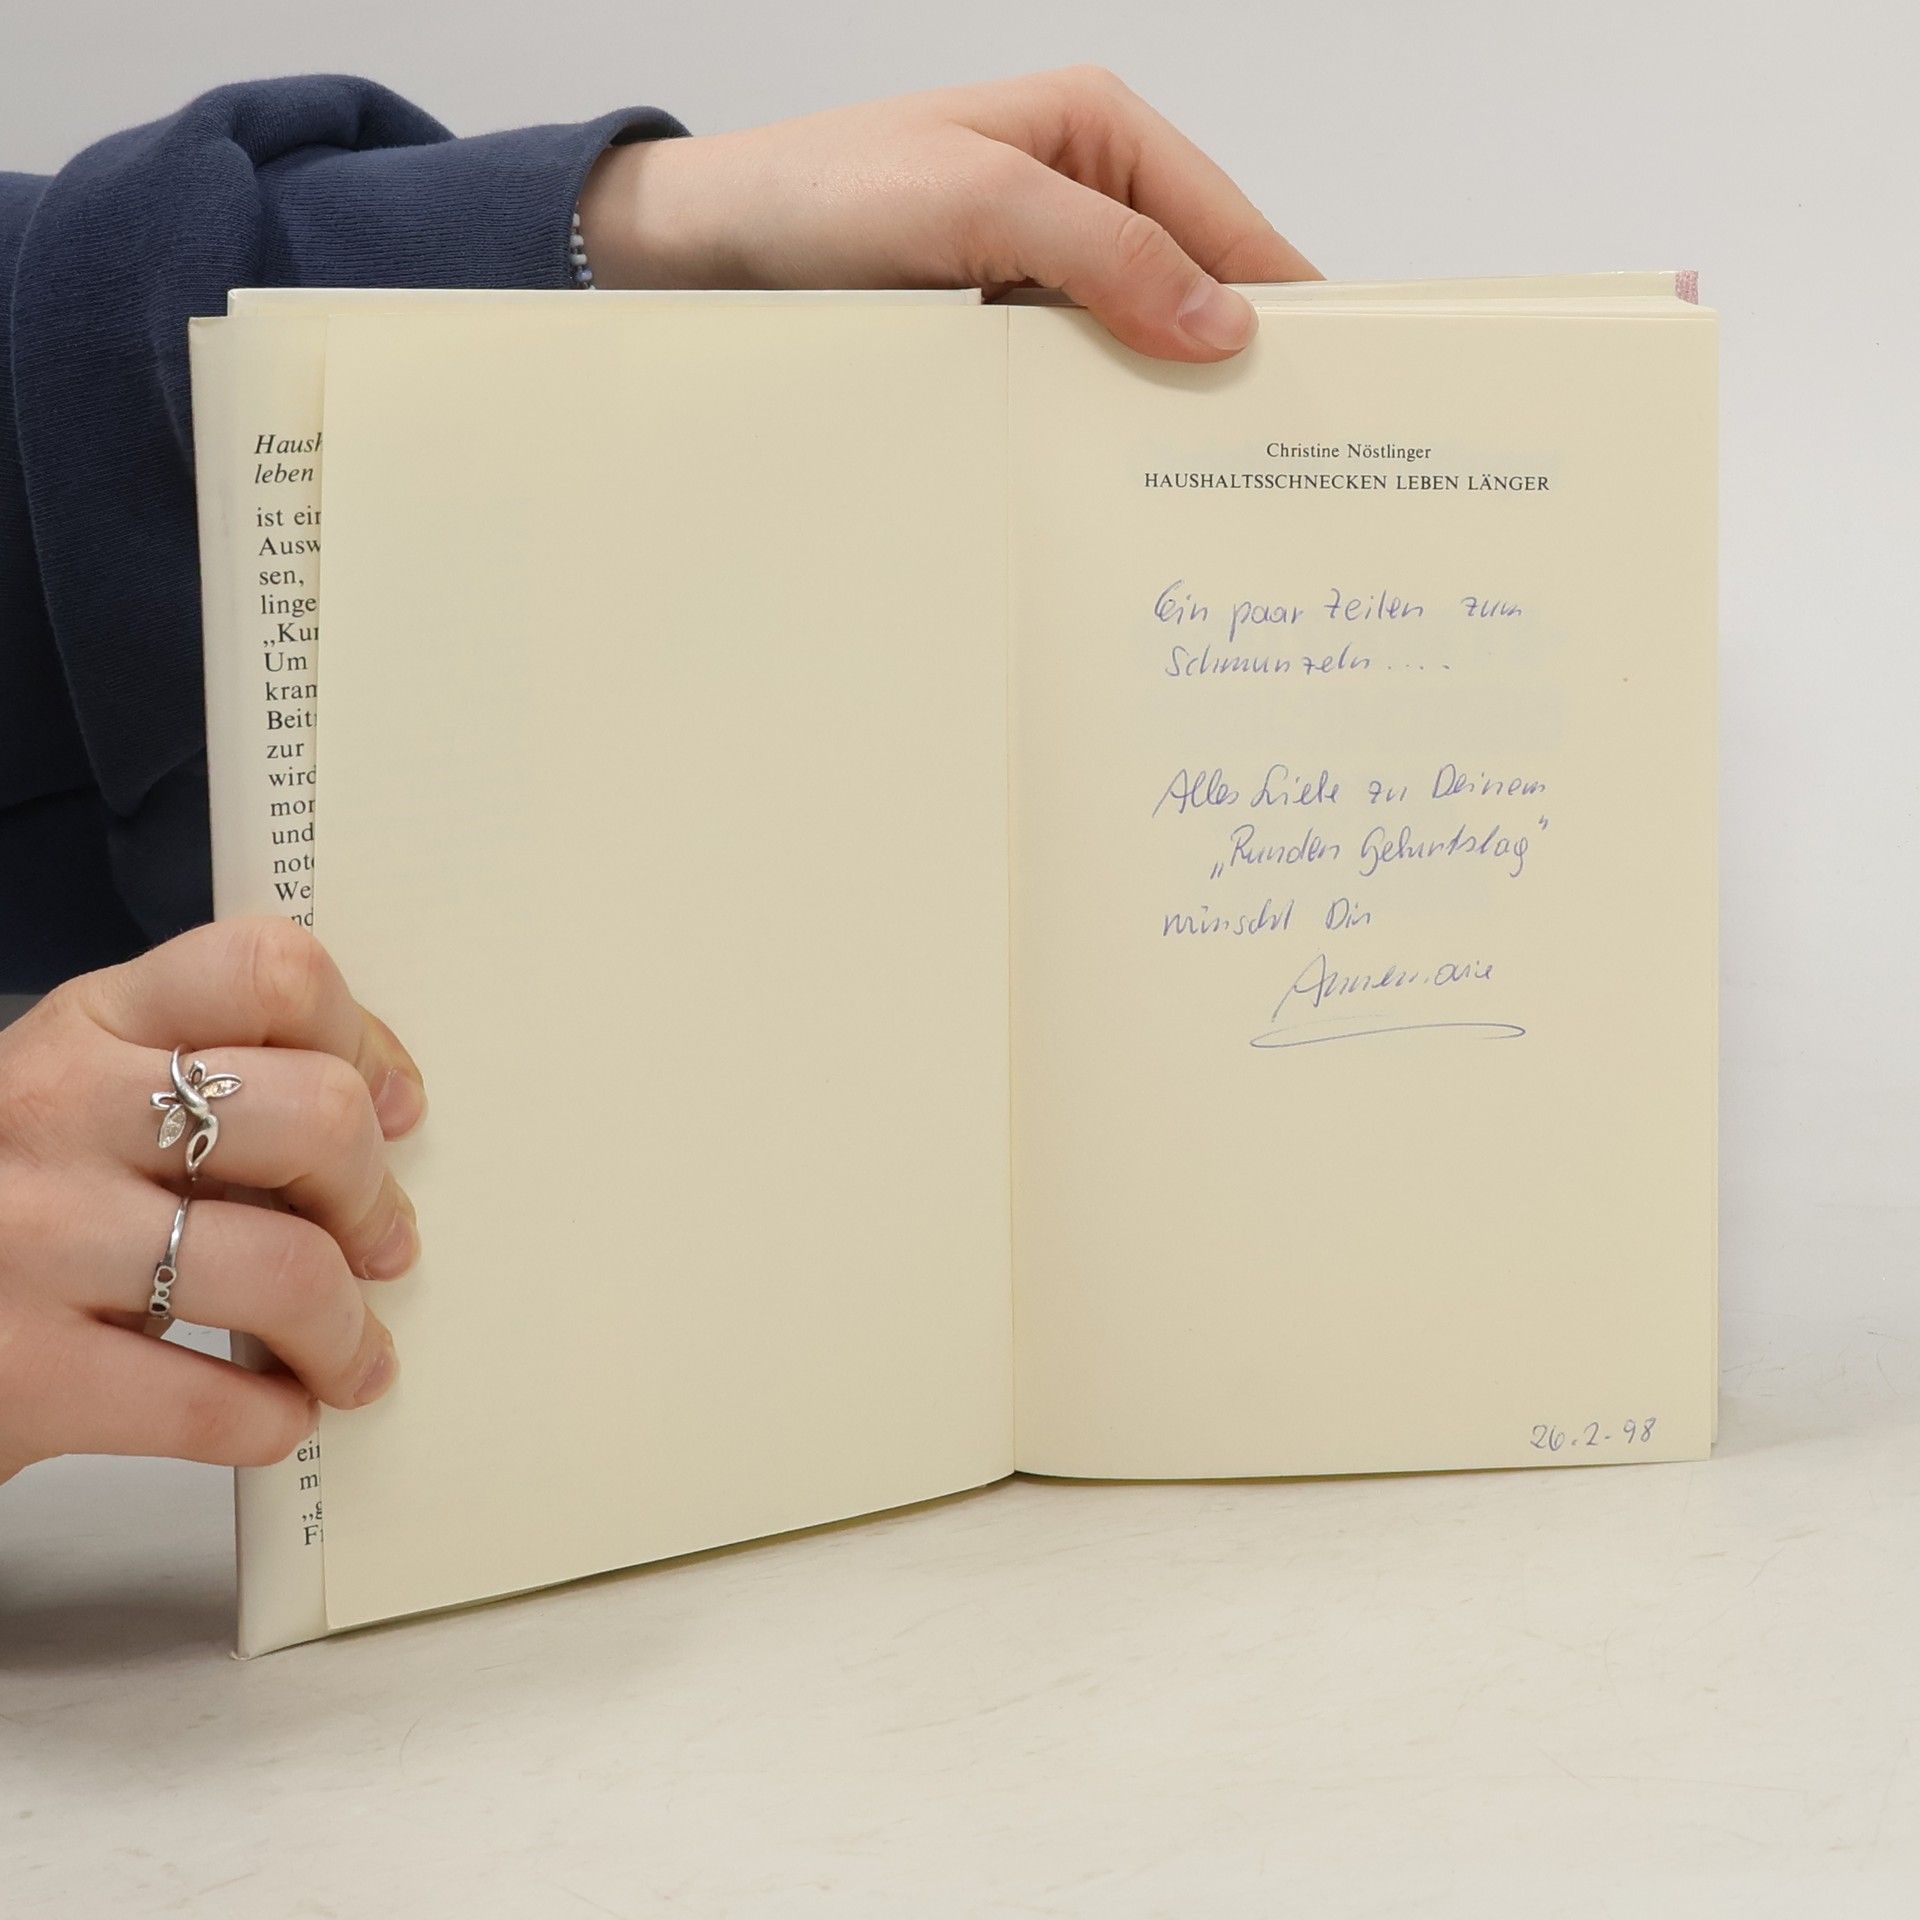 Haush
leben
ist ein
Ausw
sen,
linge
„Kur
Um
kram
Beitr
zur
wird
mor
und
note
We
nd
ein
m
„g
Fr
Christine Nöstlinger
HAUSHALTSSCHNECKEN LEBEN LÄNGER
Ein paar Zeilen zum
Schmunzeln....
Alles Liebe zu Deinem
„Runden Geburtstag"
wünscht Dir
Annemarie
26.2.98